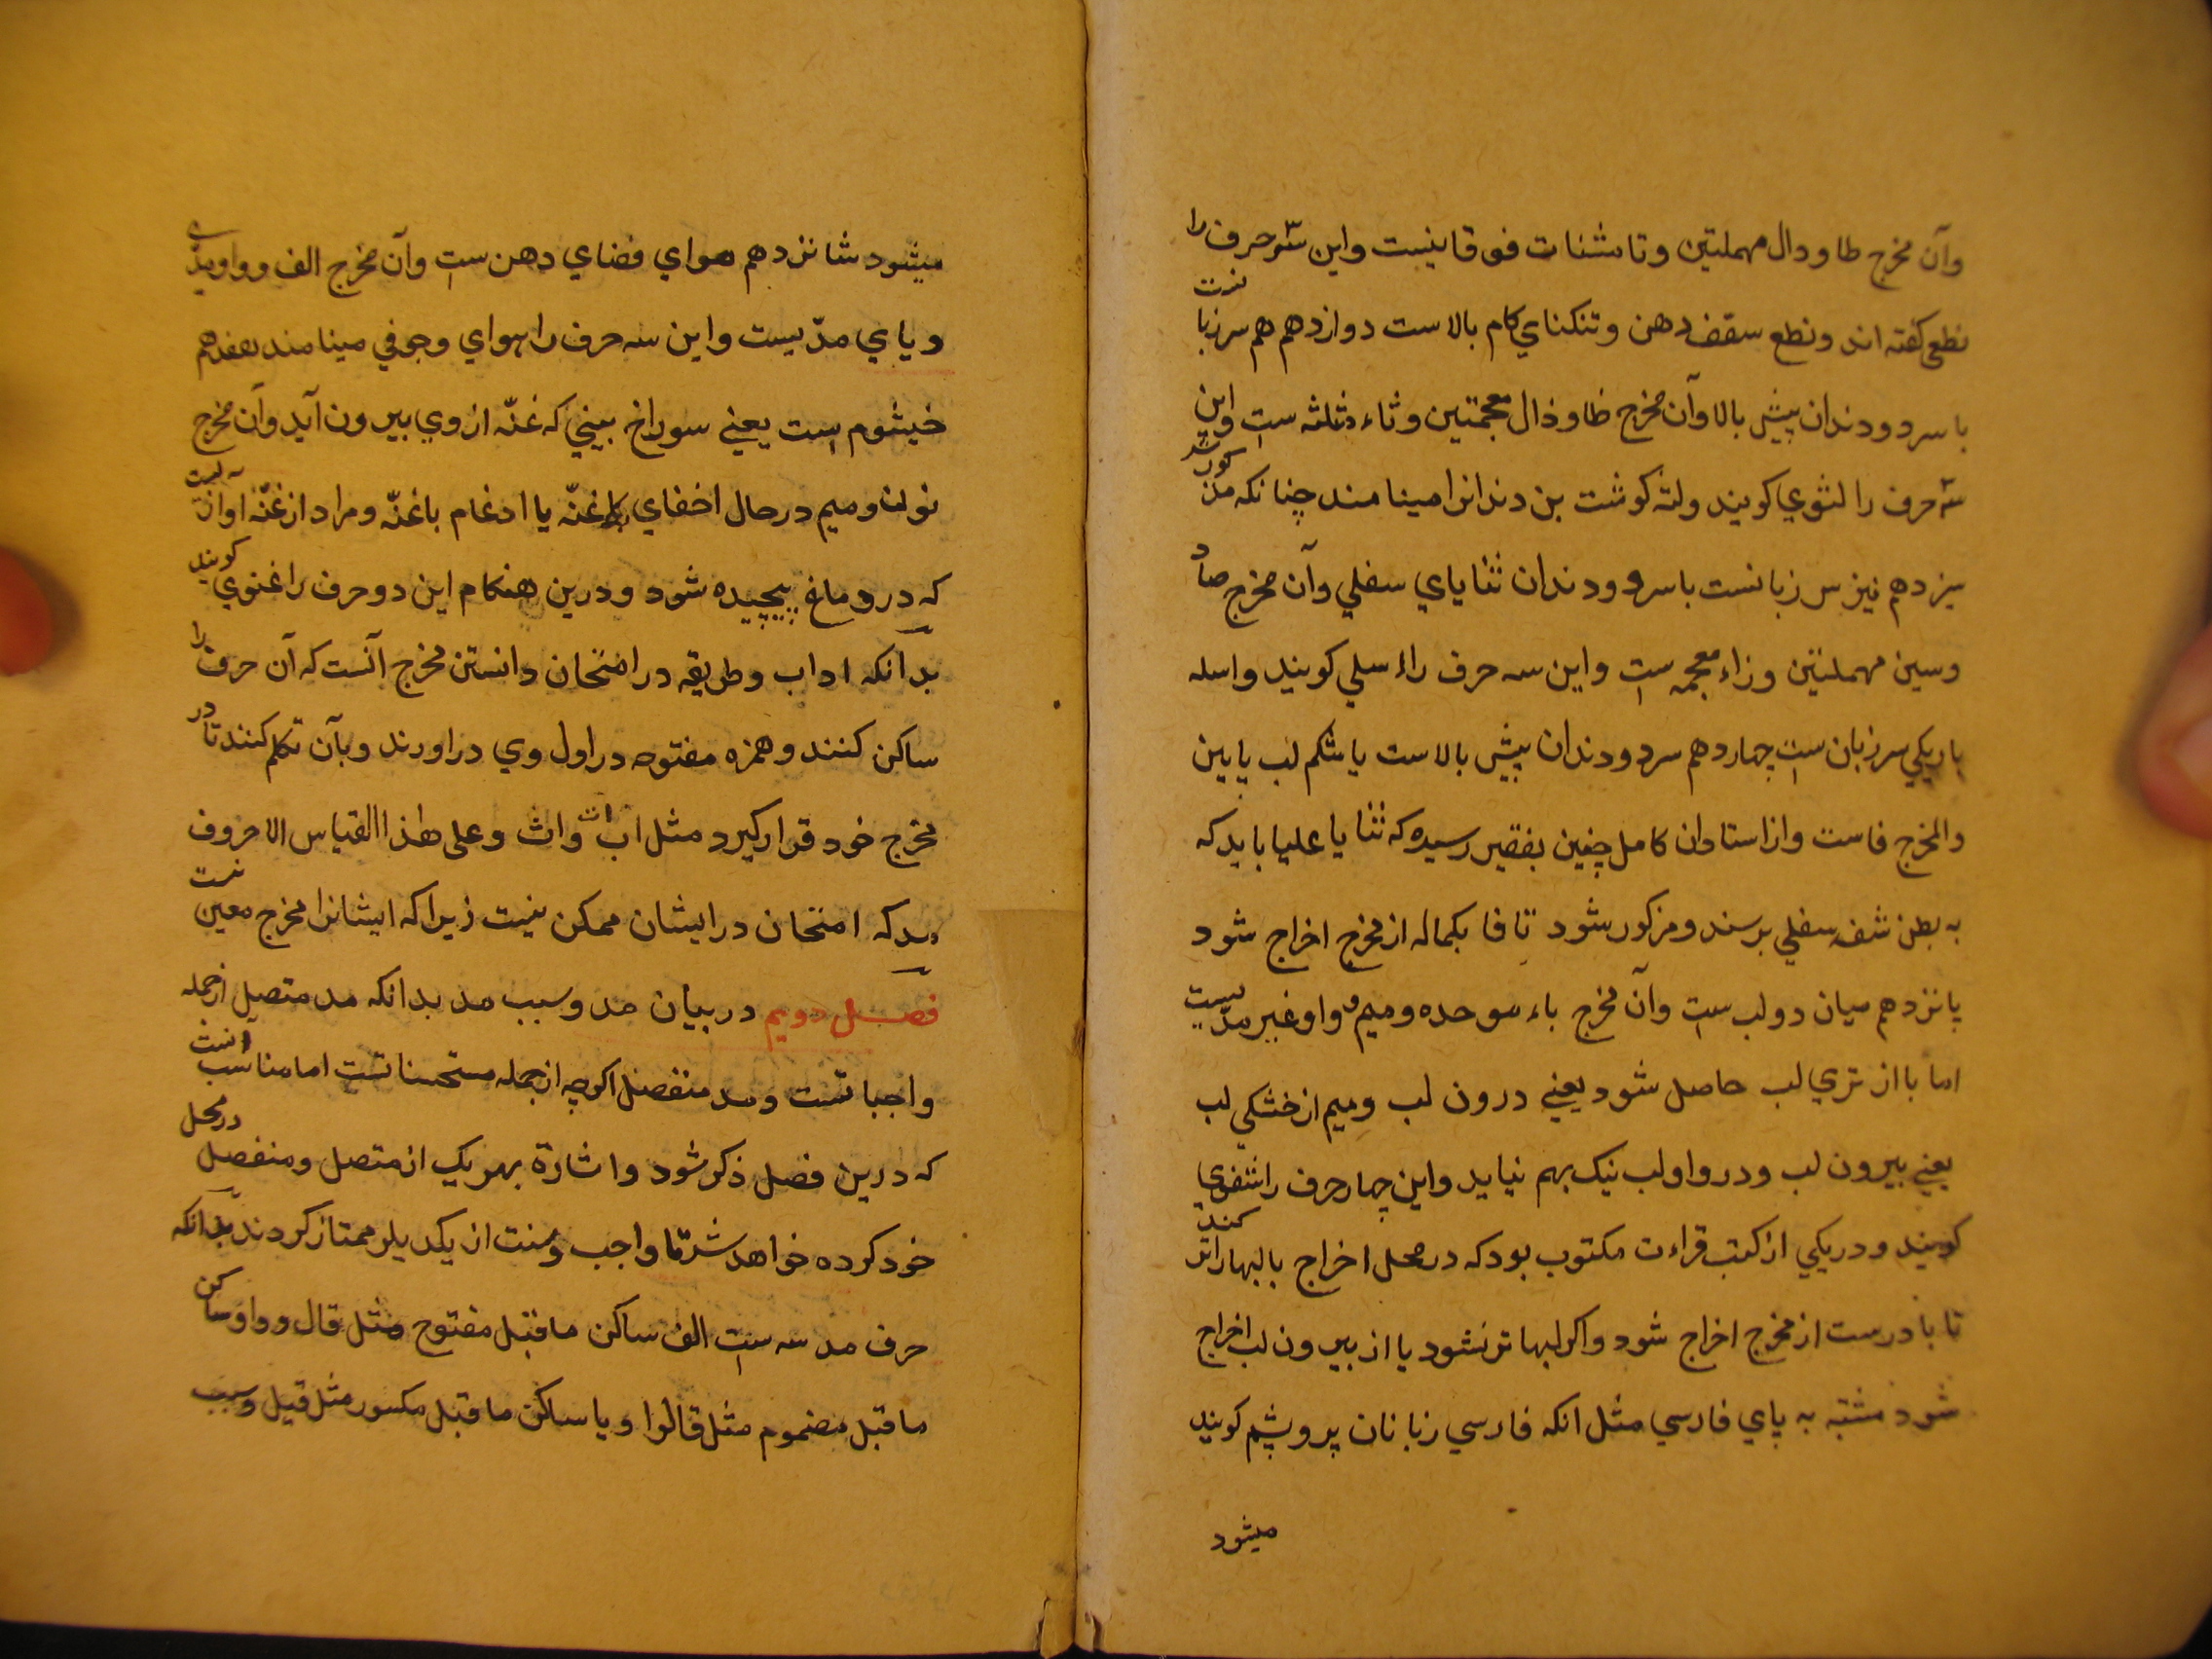 وآن مخرج طا ودال مهملتین وتا مثنات فوقانیست واین سه حرف را
نطعی کفته اند ونطع سقف دهن وتنکنای کام بالاست دوازدهم هم سر زبانست
با سر دو دندان پیش بالا وآن مخرج ظا وذال معجمتین وثاء مثلثه ست واین
سه حرف را لثوی کویند ولثه کوشت بن دندانرا مینامند چنانکه مذکور شد
سیزدهم نیز سر زبانست با سر دو دندان ثنایای سفلی وآن مخرج صاد
وسین مهملتین وزاء معجمه ست واین سه حرف را اسلی کویند واسله
باریکی سر زبان ست چهاردهم سر دو دندان پیش بالاست با شکم لب پایین
والمخرج فاست واز استادان کامل چنین بفقیر رسیده که ثنایا علیا باید که
به بطن شفه سفلی برسند ومزکور شود تا فا بکماله از مخرج اخراج شود
پانزدهم میان دو لب ست وآن مخرج باء موحده ومیم وواو غیر مدیست
اما با از تری لب حاصل شود یعنی درون لب ومیم از خشکی لب
یعنی بیرون لب ودر واو لب نیک بهم نیاید واین چهار حرف را شفوی
کویند ودر یکی از کتب قراءت مکتوب بود که در محل اخراج با لبها را تر کنند
تا با درست از مخرج اخراج شود واکر لبها تر نشود یا از بیرون لب اخراج
شود مشتبه به پای فارسی مثل انکه فارسی زبانان پر وپشم کویند
میشود
میشود شانزدهم هوای فضای دهن ست وآن مخرج الف وواو مدی
ویای مدّیست واین سه حرف را هوای وجوفی مینامند هفدهم
خیشوم است یعنی سوراخ بینی که غنّه از وی بیرون آید وآن مخرج
نون ومیم در حال اخفای با غنّه یا ادغام باغنّه ومراد از غنّه آوازیست
که در دماغ پیچیده شود ودرین هنکام این دو حرف را غنوی کویند
بدانکه اداب وطریقه در امتحان دانستن مخرج آنست که آن حرف را
ساکن کنند وهمزه مفتوحه در اول وی دراورند وبآن تکلم کنند تا در
مخرج خود قرار کیرد مثل اب ات واث وعلی هذا القیاس الا حروف
مد که امتحان در ایشان ممکن نیست زیرا که ایشانرا مخرج معین نیست
فصل دویم در بیان مد وسبب مد بدانکه مد متصل از جمله
واجباتست ومد منفصل اکرچه از جمله مستحسناتست اما مناسب انست
که درین فصل ذکر شود واشارة بهر یک از متصل ومنفصل در محل
خود کرده خواهد شد تا واجب وسنت از یکدیکر ممتاز کردند بدانکه
حرف مد سه ست الف ساکن ماقبل مفتوح مثل قال وواو ساکن
ماقبل مضموم مثل قالوا ویا ساکن ماقبل مکسور مثل قیل وسبب